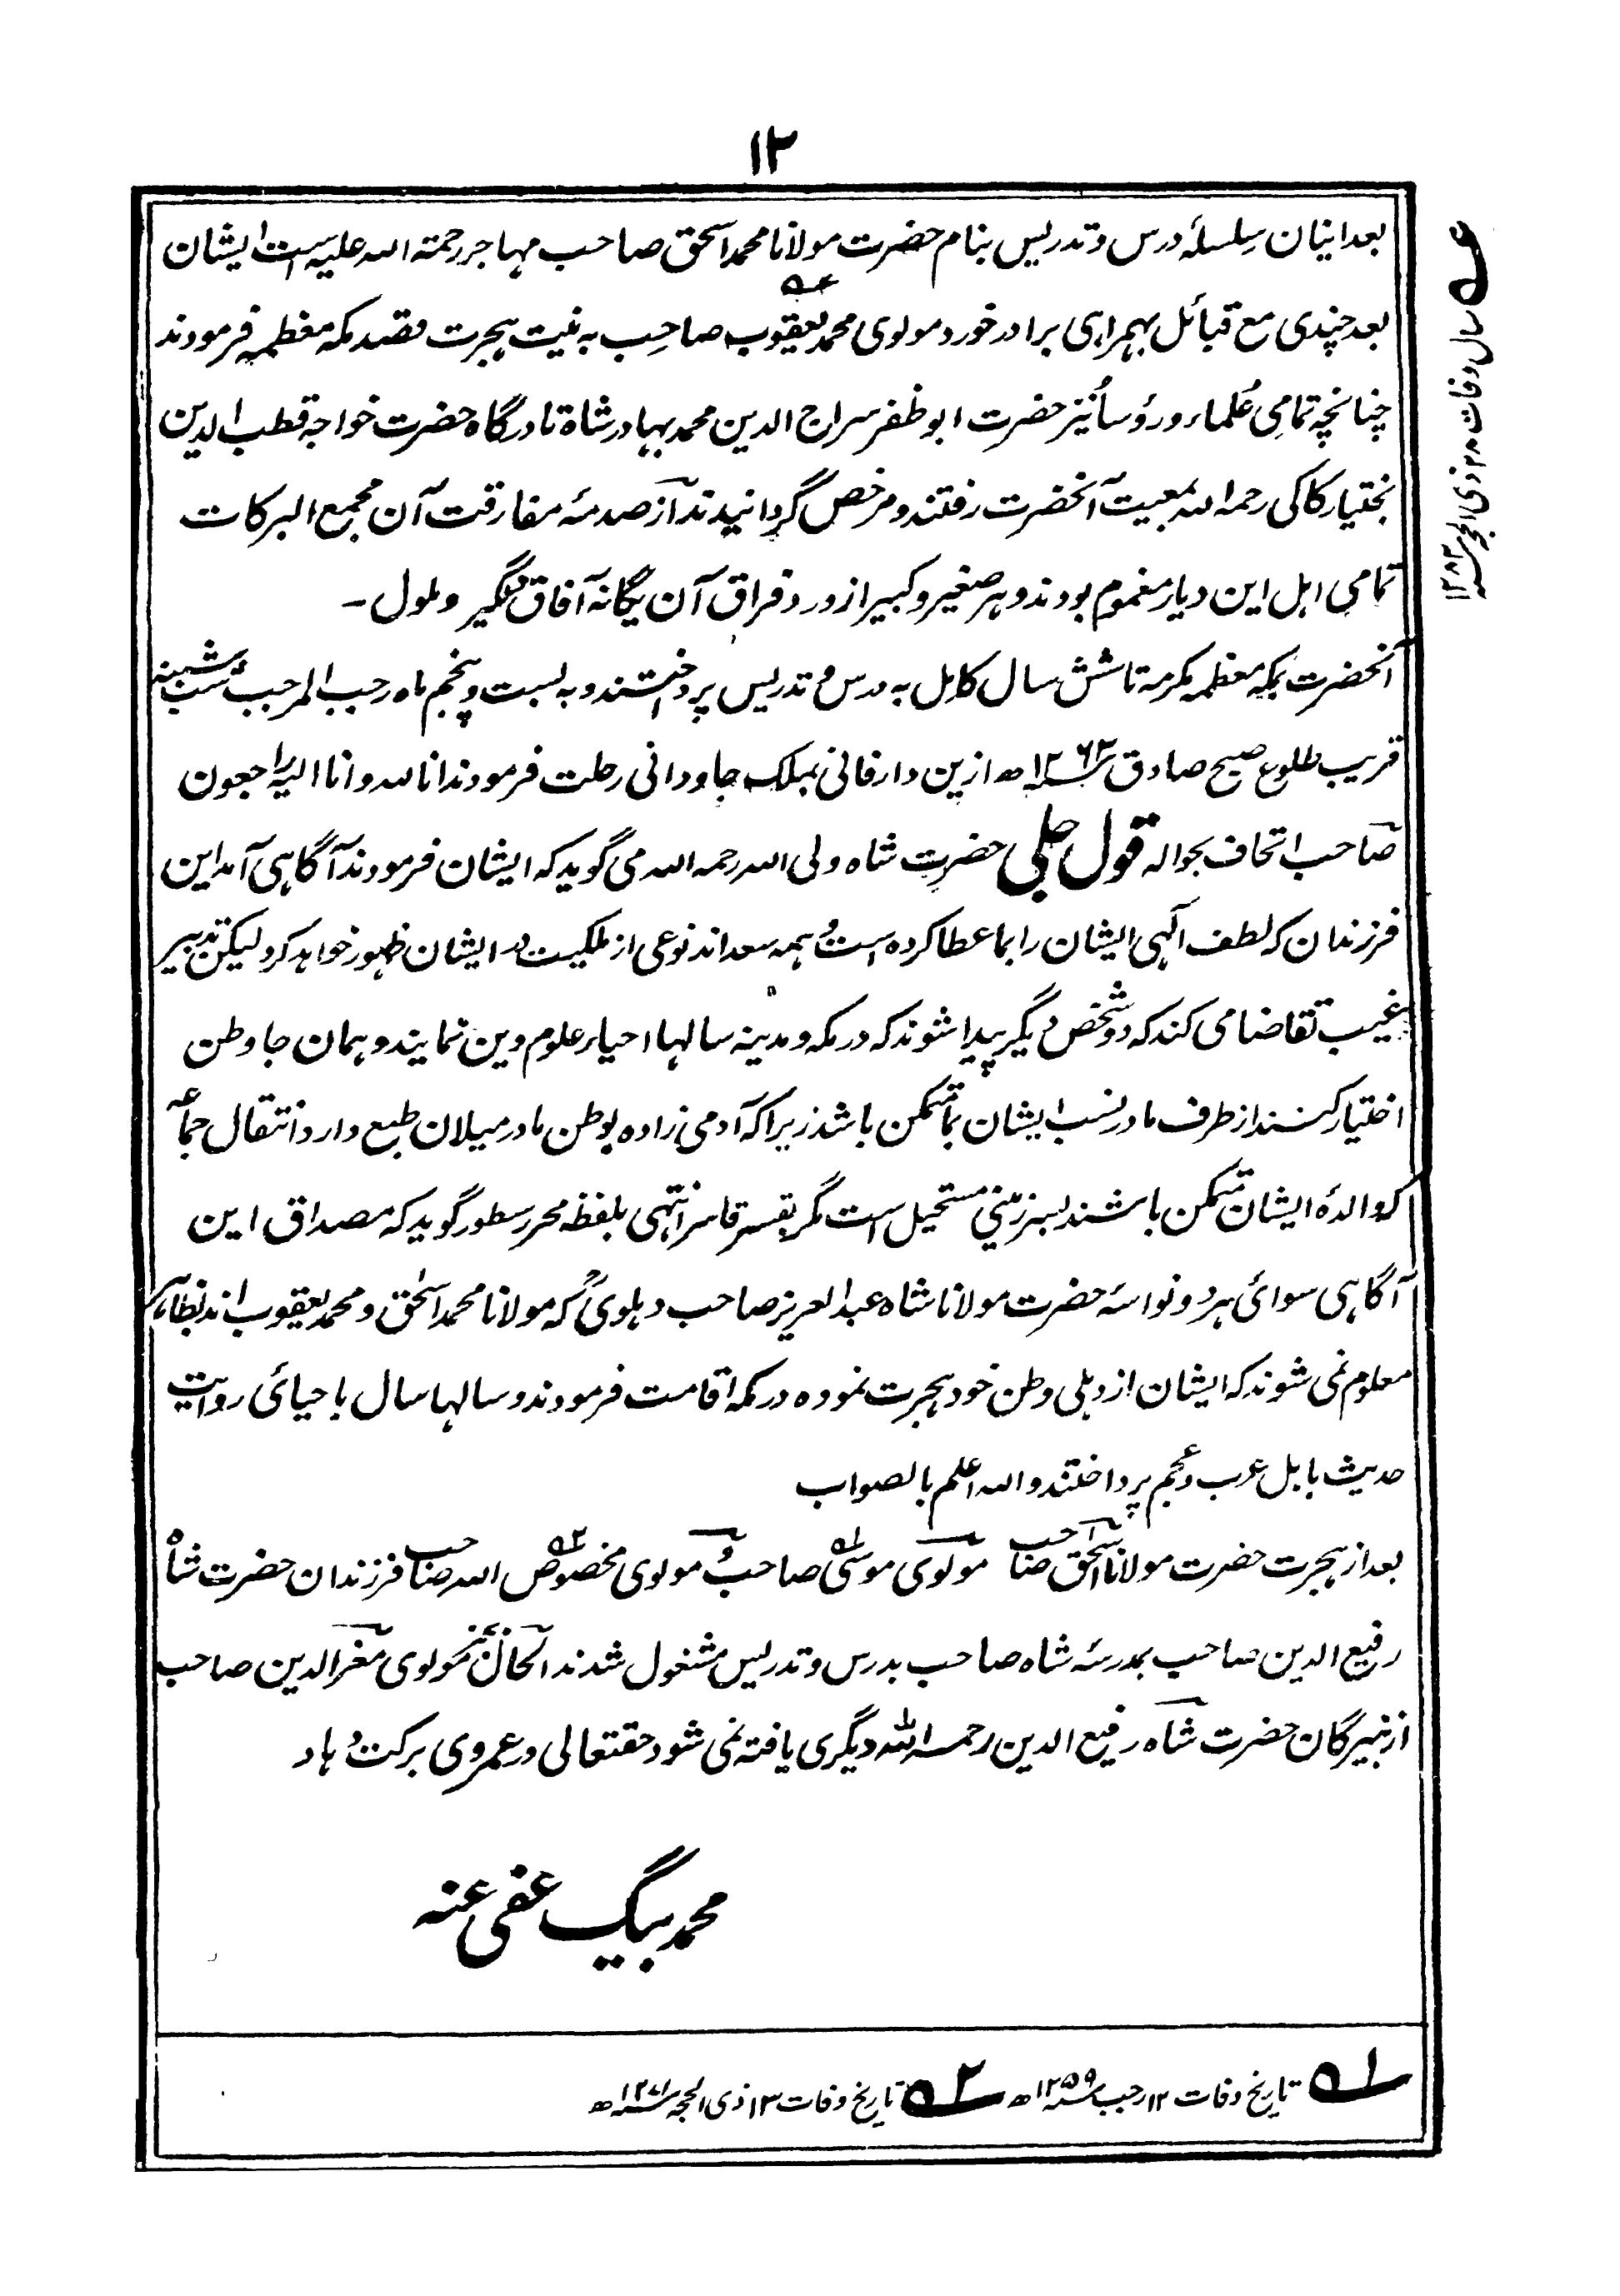 ۱۲
بعد اینان سلسلۂ درس و تدریس بنام حضرت مولانا محمد اسحٰق صاحب مہاجر رحمتہ اللہ علیہ است ایشان
بعد چندی مع قبائل بہمراہی برادر خورد مولوی محمد یعقوب صاحب بہ نیت ہجرت قصد مکہ معظمہ فرمودند
چنانچہ تمامی علماء و رؤسا نیز حضرت ابو ظفر سراج الدین محمد بہادر شاہ تا درگاہ حضرت خواجہ قطب الدین
بختیار کاکی رحمہ اللہ بمعیت آنحضرت رفتند و مرخص گردانیدند از صدمۂ مفارقت آن مجمع البرکات
تمامی اہل این دیار مغموم بودند و ہر صغیر و کبیر از درد فراق آن یگانہ آفاق غمگیر و ملول ـ
آنحضرت بمکہ معظمہ مکرمہ تا شش سال کامل بہ درس و تدریس پرداختند و بہ بست و پنجم ماہ رجب المرجب شب شنبہ
قریب طلوع صبح صادق ۱۲۶۲ھ ازین دار فانی بملک جاودانی رحلت فرمودند انا للہ وانا الیہ راجعون
صاحب اتحاف بحوالہ قول جلی حضرت شاہ ولی اللہ رحمہ اللہ می گوید کہ ایشان فرمودند آگاہی آمد این
فرزندان کہ لطف الٰہی ایشان را بما عطا کردہ است ہمہ سعداند نوعی از ملکیت در ایشان ظہور خواہد کرد لیکن تدبیر
غیب تقاضا می کند کہ دو شخص دیگر پیدا شوند کہ در مکہ و مدینہ سالہا احیاء علوم دین نمایند و ہمان جا وطن
اختیار کنند از طرف مادر نسب ایشان بما متمکن باشد زیرا کہ آدمی زادہ بوطن مادر میلان طبع دارد انتقال جماعہ
کہ والدۂ ایشان متمکن باشند بسرزمینی مستحیل است مگر بقسر قاسر انتہی بلفظہ محرر سطور گوید کہ مصداق این
آگاہی سوائی ہر دو نواسۂ حضرت مولانا شاہ عبد العزیز صاحب دہلوی کہ مولانا محمد اسحٰق و محمد یعقوب اند بظاہر
معلوم نمی شوند کہ ایشان از دہلی وطن خود ہجرت نمودہ در مکہ اقامت فرمودند و سالہا سال باحیائی روایت
حدیث باہل عرب و عجم پرداختند واللہ اعلم بالصواب
بعد از ہجرت حضرت مولانا اسحٰق صاحب مولوی موسیٰ صاحب و مولوی مخصوص اللہ صاحب فرزندان حضرت شاہ
رفیع الدین صاحب بمدرسۂ شاہ صاحب بدرس و تدریس مشغول شدند الحال مولوی معز الدین صاحب
از نبیرگان حضرت شاہ رفیع الدین رحمہ اللہ دیگری یافتہ نمی شود حقتعالی در عمر وی برکت دہاد
محمد بیگ عفی عنہ
۱ تاریخ وفات ۱۲ رجب ۱۲۵۹ھ ۲ تاریخ وفات ۱۳ ذی الحجہ ۱۲۷۱ھ
سال وفات ۲۸ ذی الحجہ ۱۲۸۲